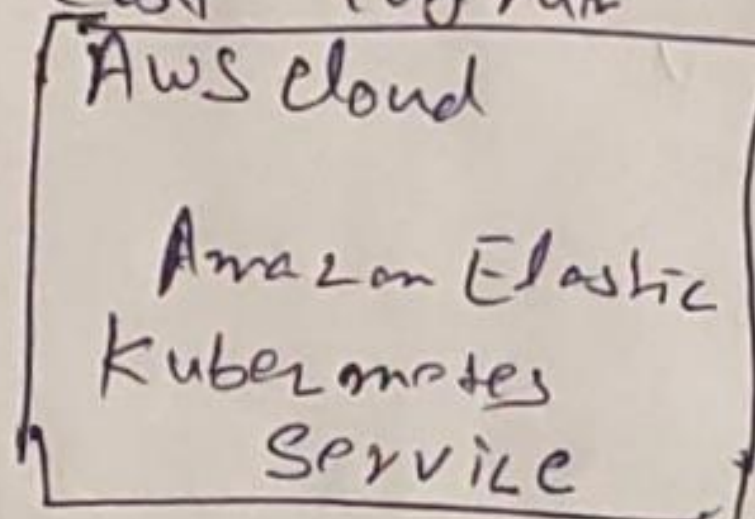 AWS cloud
Amazon Elastic
Kubernetes
Service